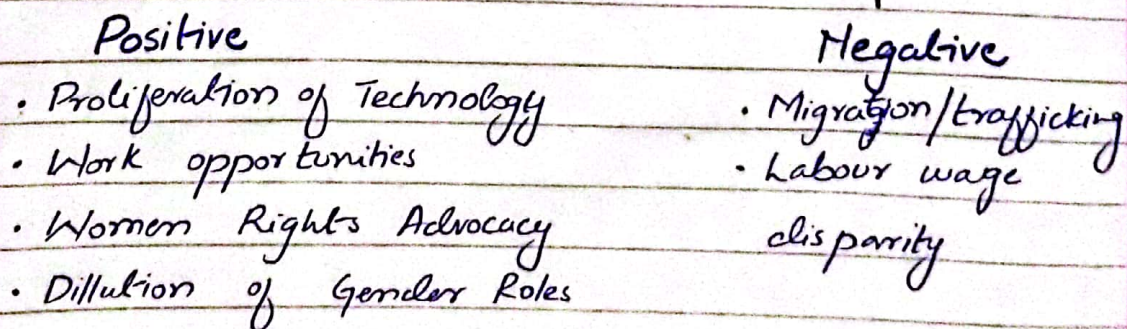 Positive
• Proliferation of Technology
• Work opportunities
• Women Rights Advocacy
• Dillution of Gender Roles
Negative
• Migration/trafficking
• Labour wage
disparity